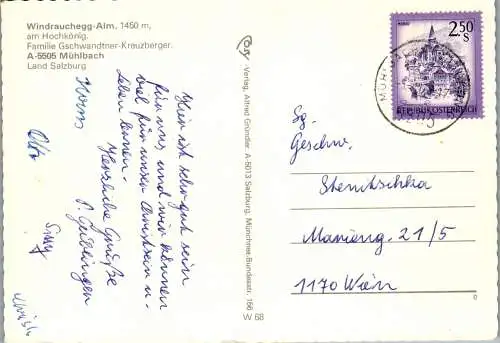 Windrauchegg-Alm, 1450 m,
am Hochkönig.
Familie Gschwandtner-Kreuzberger.
A-5505 Mühlbach
Land Salzburg
Hier ist sehr gut sein
für uns, und wir können
viel für unser Christsein u.
Leben lernen.
Herzliche Grüße
Horns
Otto
Verlag Alfred Gründler, A-5013 Salzburg, Münchner Bundesstr. 156
W 68
2.50
S
REPUBLIK ÖSTERREICH
Sg.
Geschw.
Stenitschka
Marieng. 21/5
1170 Wien